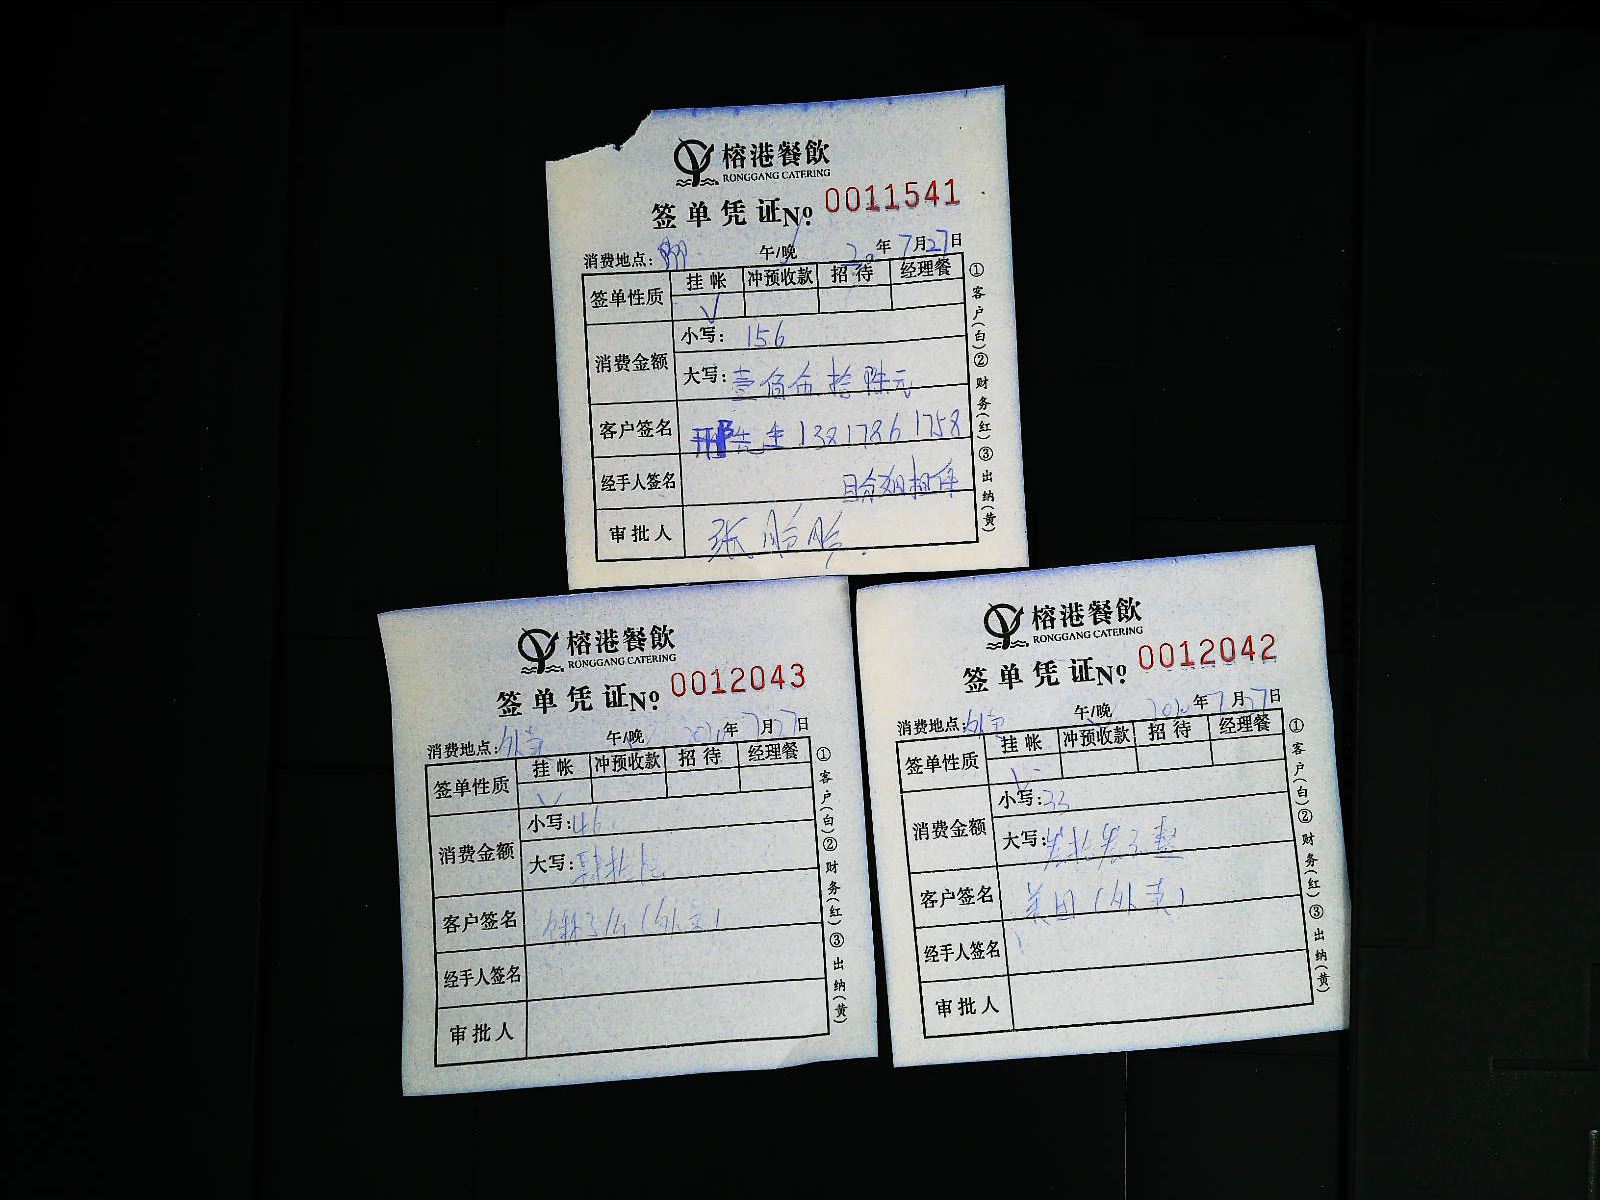 榕港餐飲
RONGGANG CATERING
签单凭证No. 0011541
消费地点: 午/晚 20年7月27日
签单性质 挂帐 冲预收款 招待 经理餐
√
消费金额 小写: 156
大写: 壹佰伍拾陆元
客户签名 邢先生 13817861758
经手人签名
审批人 张
①客户(白)②财务(红)③出纳(黄)
榕港餐飲
RONGGANG CATERING
签单凭证No. 0012043
消费地点: 外卖 午/晚 2020年7月27日
签单性质 挂帐 冲预收款 招待 经理餐
√
消费金额 小写: 46
大写:
客户签名 饿了么(外卖)
经手人签名
审批人
①客户(白)②财务(红)③出纳(黄)
榕港餐飲
RONGGANG CATERING
签单凭证No. 0012042
消费地点: 外卖 午/晚 2020年7月27日
签单性质 挂帐 冲预收款 招待 经理餐
√
消费金额 小写: 33
大写:
客户签名 美团(外卖)
经手人签名
审批人
①客户(白)②财务(红)③出纳(黄)